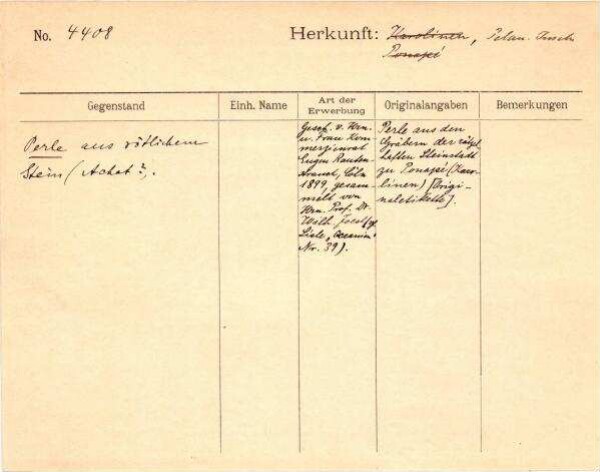 No. 4408
Herkunft: Karolinen, Pelau-Inseln
Ponapé
Gegenstand
Einh. Name
Art der
Erwerbung
Originalangaben
Bemerkungen
Perle aus rötlichem
Stein (Achat?).
Gesch. v. Hrn.
u. Frau Kom-
merzienrat
Eugen Rauten-
strauch, Cöln
1899, gesam-
melt von
Hrn. Prof. Dr.
Wilh. Joest (cf.
Liste, Oceanien
Nr. 39).
Perle aus den
Gräbern der rätsel-
haften Steinstadt
zu Ponapé (Karo-
linen) [Origi-
naletikette].